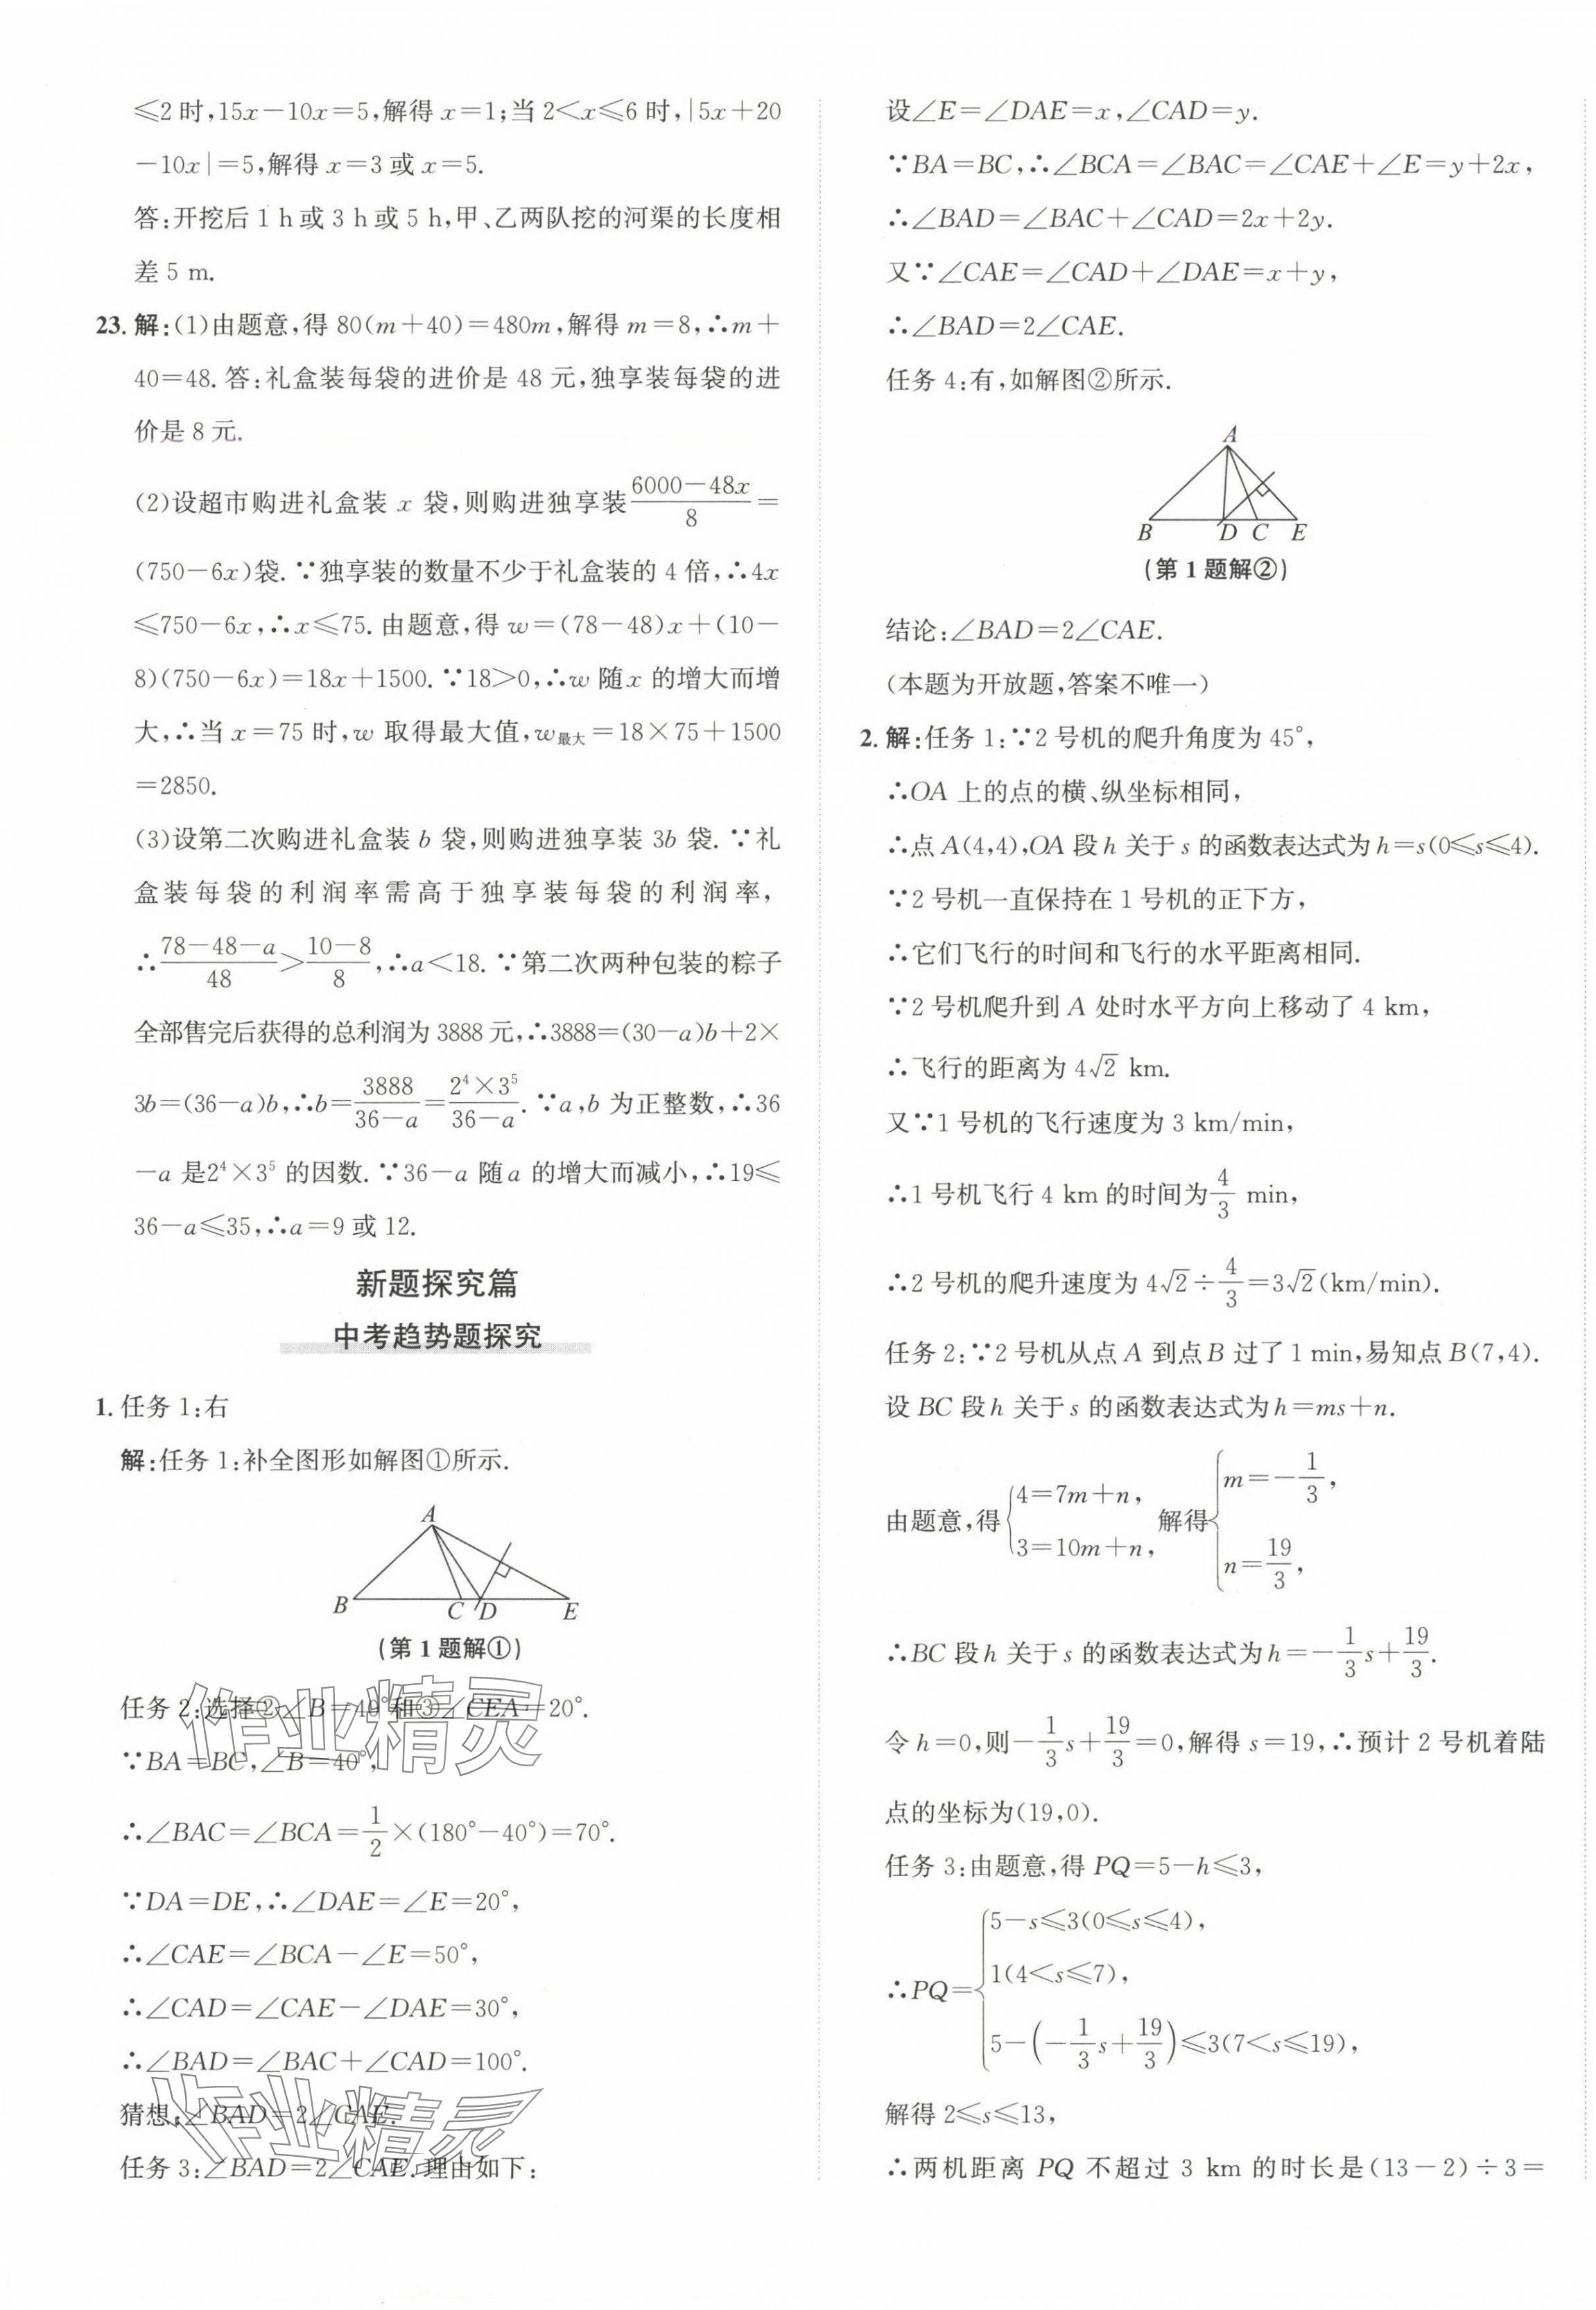 ≤2时,15x-10x=5,解得x=1;当2<x≤6时,|5x+20
-10x|=5,解得x=3或x=5.
答:开挖后1 h或3 h或5 h,甲、乙两队挖的河渠的长度相
差5 m.
23. 解:(1)由题意,得80(m+40)=480m,解得m=8,∴m+
40=48.答:礼盒装每袋的进价是48元,独享装每袋的进
价是8元.
(2)设超市购进礼盒装x袋,则购进独享装\frac{6000-48x}{8}=
(750-6x)袋.∵独享装的数量不少于礼盒装的4倍,∴4x
≤750-6x,∴x≤75.由题意,得w=(78-48)x+(10-
8)(750-6x)=18x+1500.∵18>0,∴w随x的增大而增
大,∴当x=75时,w取得最大值,w最大=18×75+1500
=2850.
(3)设第二次购进礼盒装b袋,则购进独享装3b袋.∵礼
盒装每袋的利润率需高于独享装每袋的利润率,
∴\frac{78-48-a}{48}>\frac{10-8}{8},∴a<18.∵第二次两种包装的粽子
全部售完后获得的总利润为3888元,∴3888=(30-a)b+2×
3b=(36-a)b,∴b=\frac{3888}{36-a}=\frac{2⁴×3⁵}{36-a}.∵a,b为正整数,∴36
-a是2⁴×3⁵的因数.∵36-a随a的增大而减小,∴19≤
36-a≤35,∴a=9或12.
新题探究篇
中考趋势题探究
1. 任务1:右
解:任务1:补全图形如解图①所示.
A
B C D E
(第1题解①)
任务2:选择②∠B=40°和③∠CEA=20°.
∵BA=BC,∠B=40°,
∴∠BAC=∠BCA=\frac{1}{2}×(180°-40°)=70°.
∵DA=DE,∴∠DAE=∠E=20°,
∴∠CAE=∠BCA-∠E=50°,
∴∠CAD=∠CAE-∠DAE=30°,
∴∠BAD=∠BAC+∠CAD=100°.
猜想:∠BAD=2∠CAE.
任务3:∠BAD=2∠CAE.理由如下:
作业精灵
作业精灵
设∠E=∠DAE=x,∠CAD=y.
∵BA=BC,∴∠BCA=∠BAC=∠CAE+∠E=y+2x,
∴∠BAD=∠BAC+∠CAD=2x+2y.
又∵∠CAE=∠CAD+∠DAE=x+y,
∴∠BAD=2∠CAE.
任务4:有,如解图②所示.
A
B D C E
(第1题解②)
结论:∠BAD=2∠CAE.
(本题为开放题,答案不唯一)
2. 解:任务1:∵2号机的爬升角度为45°,
∴OA上的点的横、纵坐标相同,
∴点A(4,4),OA段h关于s的函数表达式为h=s(0≤s≤4).
∵2号机一直保持在1号机的正下方,
∴它们飞行的时间和飞行的水平距离相同.
∵2号机爬升到A处时水平方向上移动了4 km,
∴飞行的距离为4√2 km.
又∵1号机的飞行速度为3 km/min,
∴1号机飞行4 km的时间为\frac{4}{3} min,
∴2号机的爬升速度为4√2÷\frac{4}{3}=3√2(km/min).
任务2:∵2号机从点A到点B过了1 min,易知点B(7,4).
设BC段h关于s的函数表达式为h=ms+n.
由题意,得{4=7m+n, 3=10m+n, 解得{m=-\frac{1}{3}, n=\frac{19}{3},
∴BC段h关于s的函数表达式为h=-\frac{1}{3}s+\frac{19}{3}.
令h=0,则-\frac{1}{3}s+\frac{19}{3}=0,解得s=19,∴预计2号机着陆
点的坐标为(19,0).
任务3:由题意,得PQ=5-h≤3,
∴PQ={5-s≤3(0≤s≤4),
1(4<s≤7),
5-(-\frac{1}{3}s+\frac{19}{3})≤3(7<s≤19),
解得2≤s≤13,
∴两机距离PQ不超过3 km的时长是(13-2)÷3=